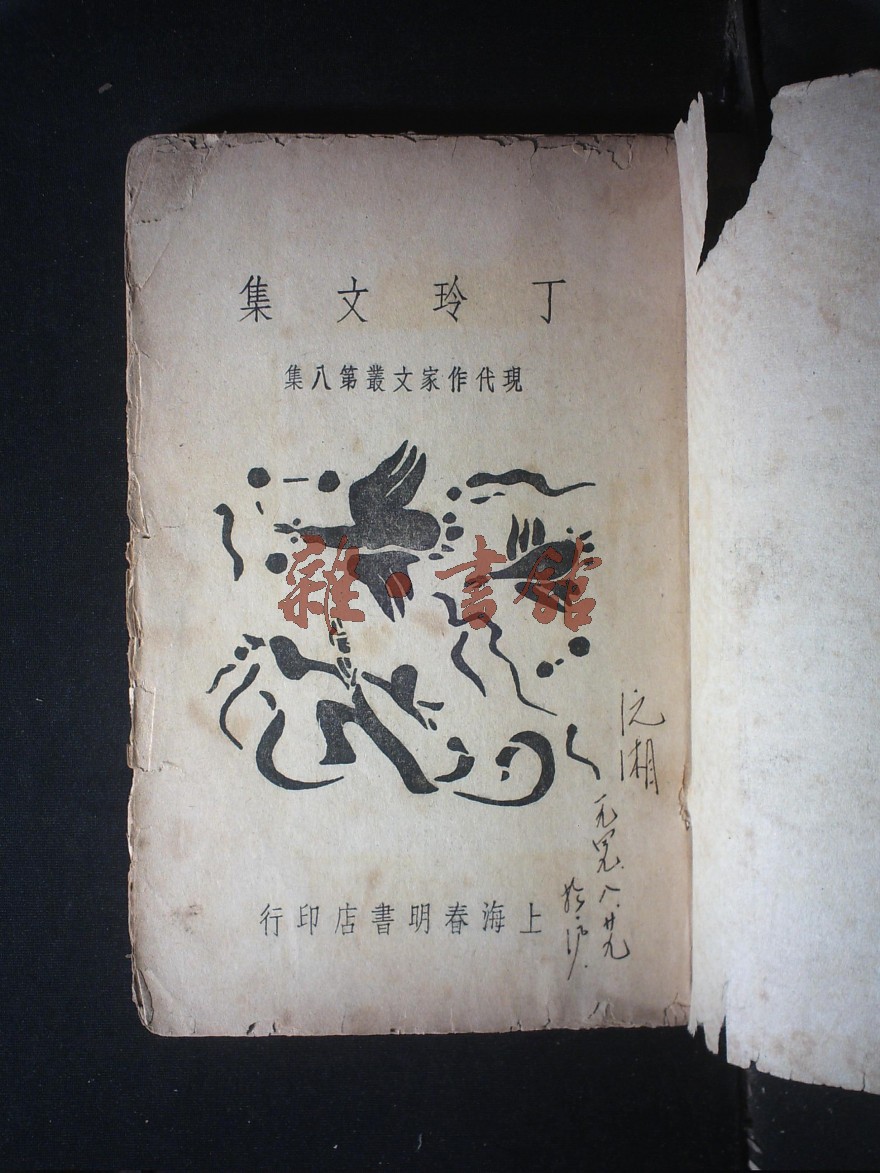 丁玲文集
現代作家文叢第八集
雜·書館
沅湘
一九四九.八.廿九
於滬.
上海春明書店印行